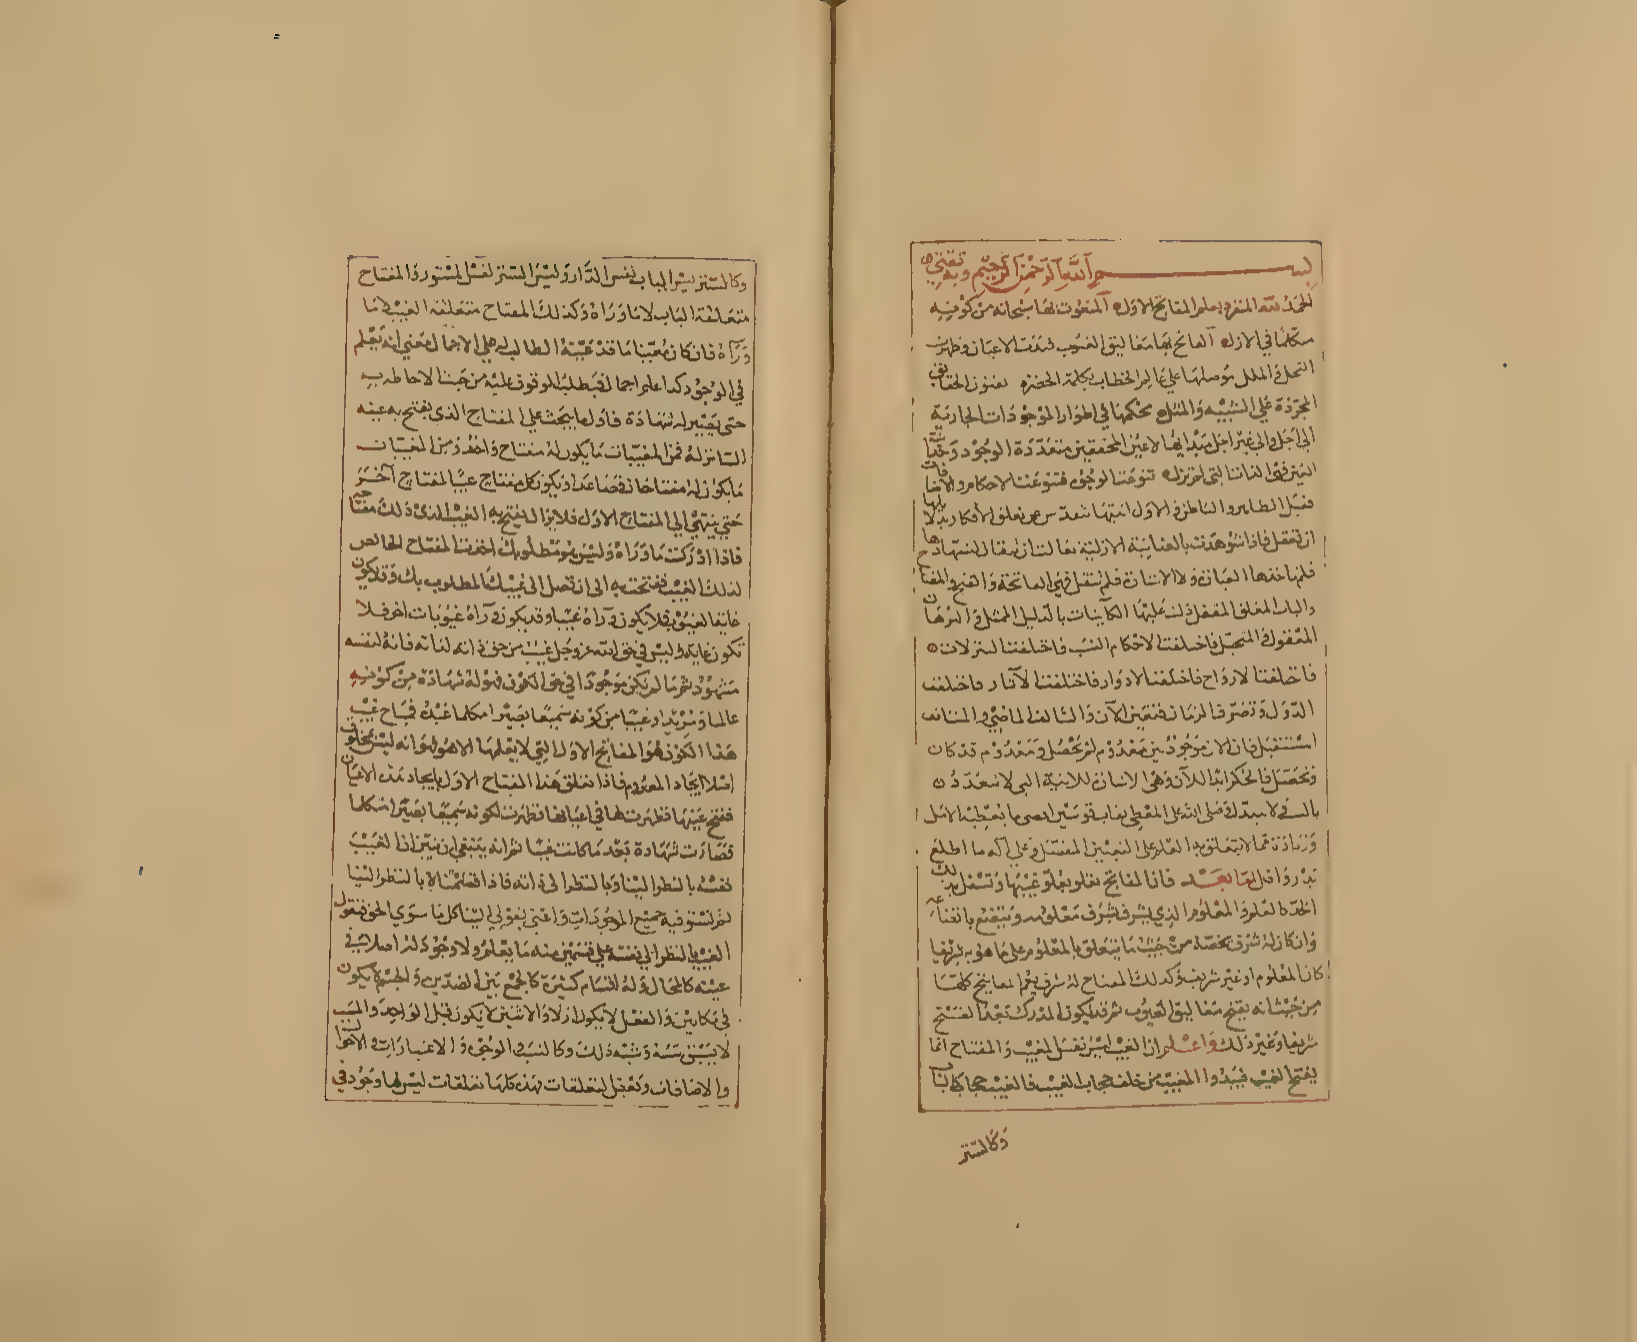 بسم الله الرحمن الرحيم وبه ثقتي
الحمد لله المنفرد بعلم المفاتح الاول المنعوت بها سبحانه من كونه
متكلما في الازل الفاتح بها مغاليق الغيوب فبدت الاعيان وظهرت
النحل والملل موصلها على عالم الخطاب بكلمة الحضرة بفنون الحقائق
المجردة على التشبيه والمثل بحكمها في اطوار الموجودات الجارية
الى اجل والى غير اجل مبدا بها لاعين المحققين متعددة الوجود وحدانية
العين فهي الذات التي لم تزل تنوعت الوجوه فتنوعت الاحكام والاضافات
فقيل الظاهر والباطن والاول
ان تعقل فاذا شوهدت بالعناية الازلية
فلم تاخذها العبارة ولا الاشارة فلم تنتقل فهي الفاتحة والفتح والمفتاح
والباب المغلق المقفل دلت عليها الكائنات بالدليل
المعقول فاختلفت الاحكام النسب فاختلفت التنزلات
فاختلفت الارواح فاختلفت الادوار فاختلفت الآثار فاختلفت
الدول وتصرف الزمان فتعين الآن والسالف الماضي والمستانف
المستقبل فان الان موجود بين معدوم لم يحصل ومعدوم قد كان
وتحصل فالحكم ابدا للآن وهي
صلى الله على المعطى بقاب قوسين
وزيادة مما لا يتعلق به العلم على التعيين المفصل وعلى آله ما اطلع
بدر وافل اما بعد فان المفاتح تعلو بعلو غيبها وتسفل بذلك
الحد كالعلم والمعلوم الذي يشرف بشرف معلومه ويتضع باتضاعه
وان كان له شرف يخصه من حيث ما يتعلق بالمعلوم على ما هو به شريفا
كان المعلوم او غير شريف وكذلك المفتاح له شرف يعم المفاتيح كلها
من حيث انه يفتح مغاليق الغيوب ثم قد يكون المدرك بعد الفتح
شريفا وغير ذلك واعلم ان الغيب ليس نفس المغيب والمفتاح انما
يفتح الغيب فيبدوا المغيب من خلف حجاب الغيب فالغيب حجاب كالباب
وكالستر
وكالستر ليس الباب نفس الدار وليس الستر نفس المستور والمفتاح
متعلقه الباب لا ما وراه وكذلك المفتاح متعلقه الغيب لا ما
وراه فان كان مغيبا ما قد عينه الطالب له على الاجمال بمعنى انه يعلم
في الوجود كذا علم اجمال فيطلب الوقوف عليه من حيث الاحاطة به
حتى يصير له شهادة فاول ما يبحث على المفتاح الذي يفتح به عينه
الساتر له فمن المغيبات ما يكون له مفتاح واحد ومن المغيبات
ما يكون له مفتاحان فصاعدا ويكون كل مفتاح غيبا لمفتاح آخر
حتى ينتهي الى المفتاح الاول فلا يزال يفتح به الغيب الذي ذلك مفتاحه
فاذا ادركت ما وراه وليس هو مطلوبك اخذت المفتاح الخالص
لذلك الغيب ففتحت به الى ان تصل الى غيبك المطلوب بك وقد لا يكون
غاية الغيوب فلا يكون وراه غيبا وقد يكون وراه غيوبات اخر فلا
تكون غايته وليس في حق الله عز وجل غيب من حق ذاته لذاته فانه لنفسه
مشهود ثم ما لم يكن موجودا في حق الكون فهو له شهادة من كونه
عالما ومريدا وغيبا من كونه سميعا بصيرا متكلما عنده فمفتاح غيب
هذا الكون هو المفاتح الاول التي لا يعلمها الا هو لو انه ليس لمخلوق
اصلا ايجاد المعدوم فاذا تعلق هذا المفتاح الاول بايجاد هذه الاعيان
ففتح غيبها فظهرت هنا في اعيانها فظهرت لكونه سميعا بصيرا متكلما
فصارت شهادة بعد ما كانت غيبا ثم انه ينبغي ان نبين ان الغيب
نفسه بالنظر الينا وبالنظر الى ذاته فاذا قسمناه بالنظر الينا
لم نستوفيه جميع الموجودات واعني بقولي الينا كل ما سوى الحق فنقول
الغيب بالنظر الى نفسه على قسمين منه ما يعلم ولا وجود له اصلا في
عينه كالمحال وله اقسام كثيرة كالجمع بين الضدين والجسم لا يكون
في مكانين والفعل لا يكون ازلا والاثنين لا يكون قبل الواحد والمسبب
لا يسبق سببه وشبه ذلك وكالنسب والوجوه والاعتبارات والاحوال
والاضافات وتعقل المتعلقات فهذه كلها تعلقات ليس لها وجود في